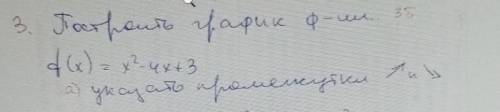 3. Построить график ф-ии. 3б
f(x) = x²-4x+3
а) указать промежутки ↗ и ↘